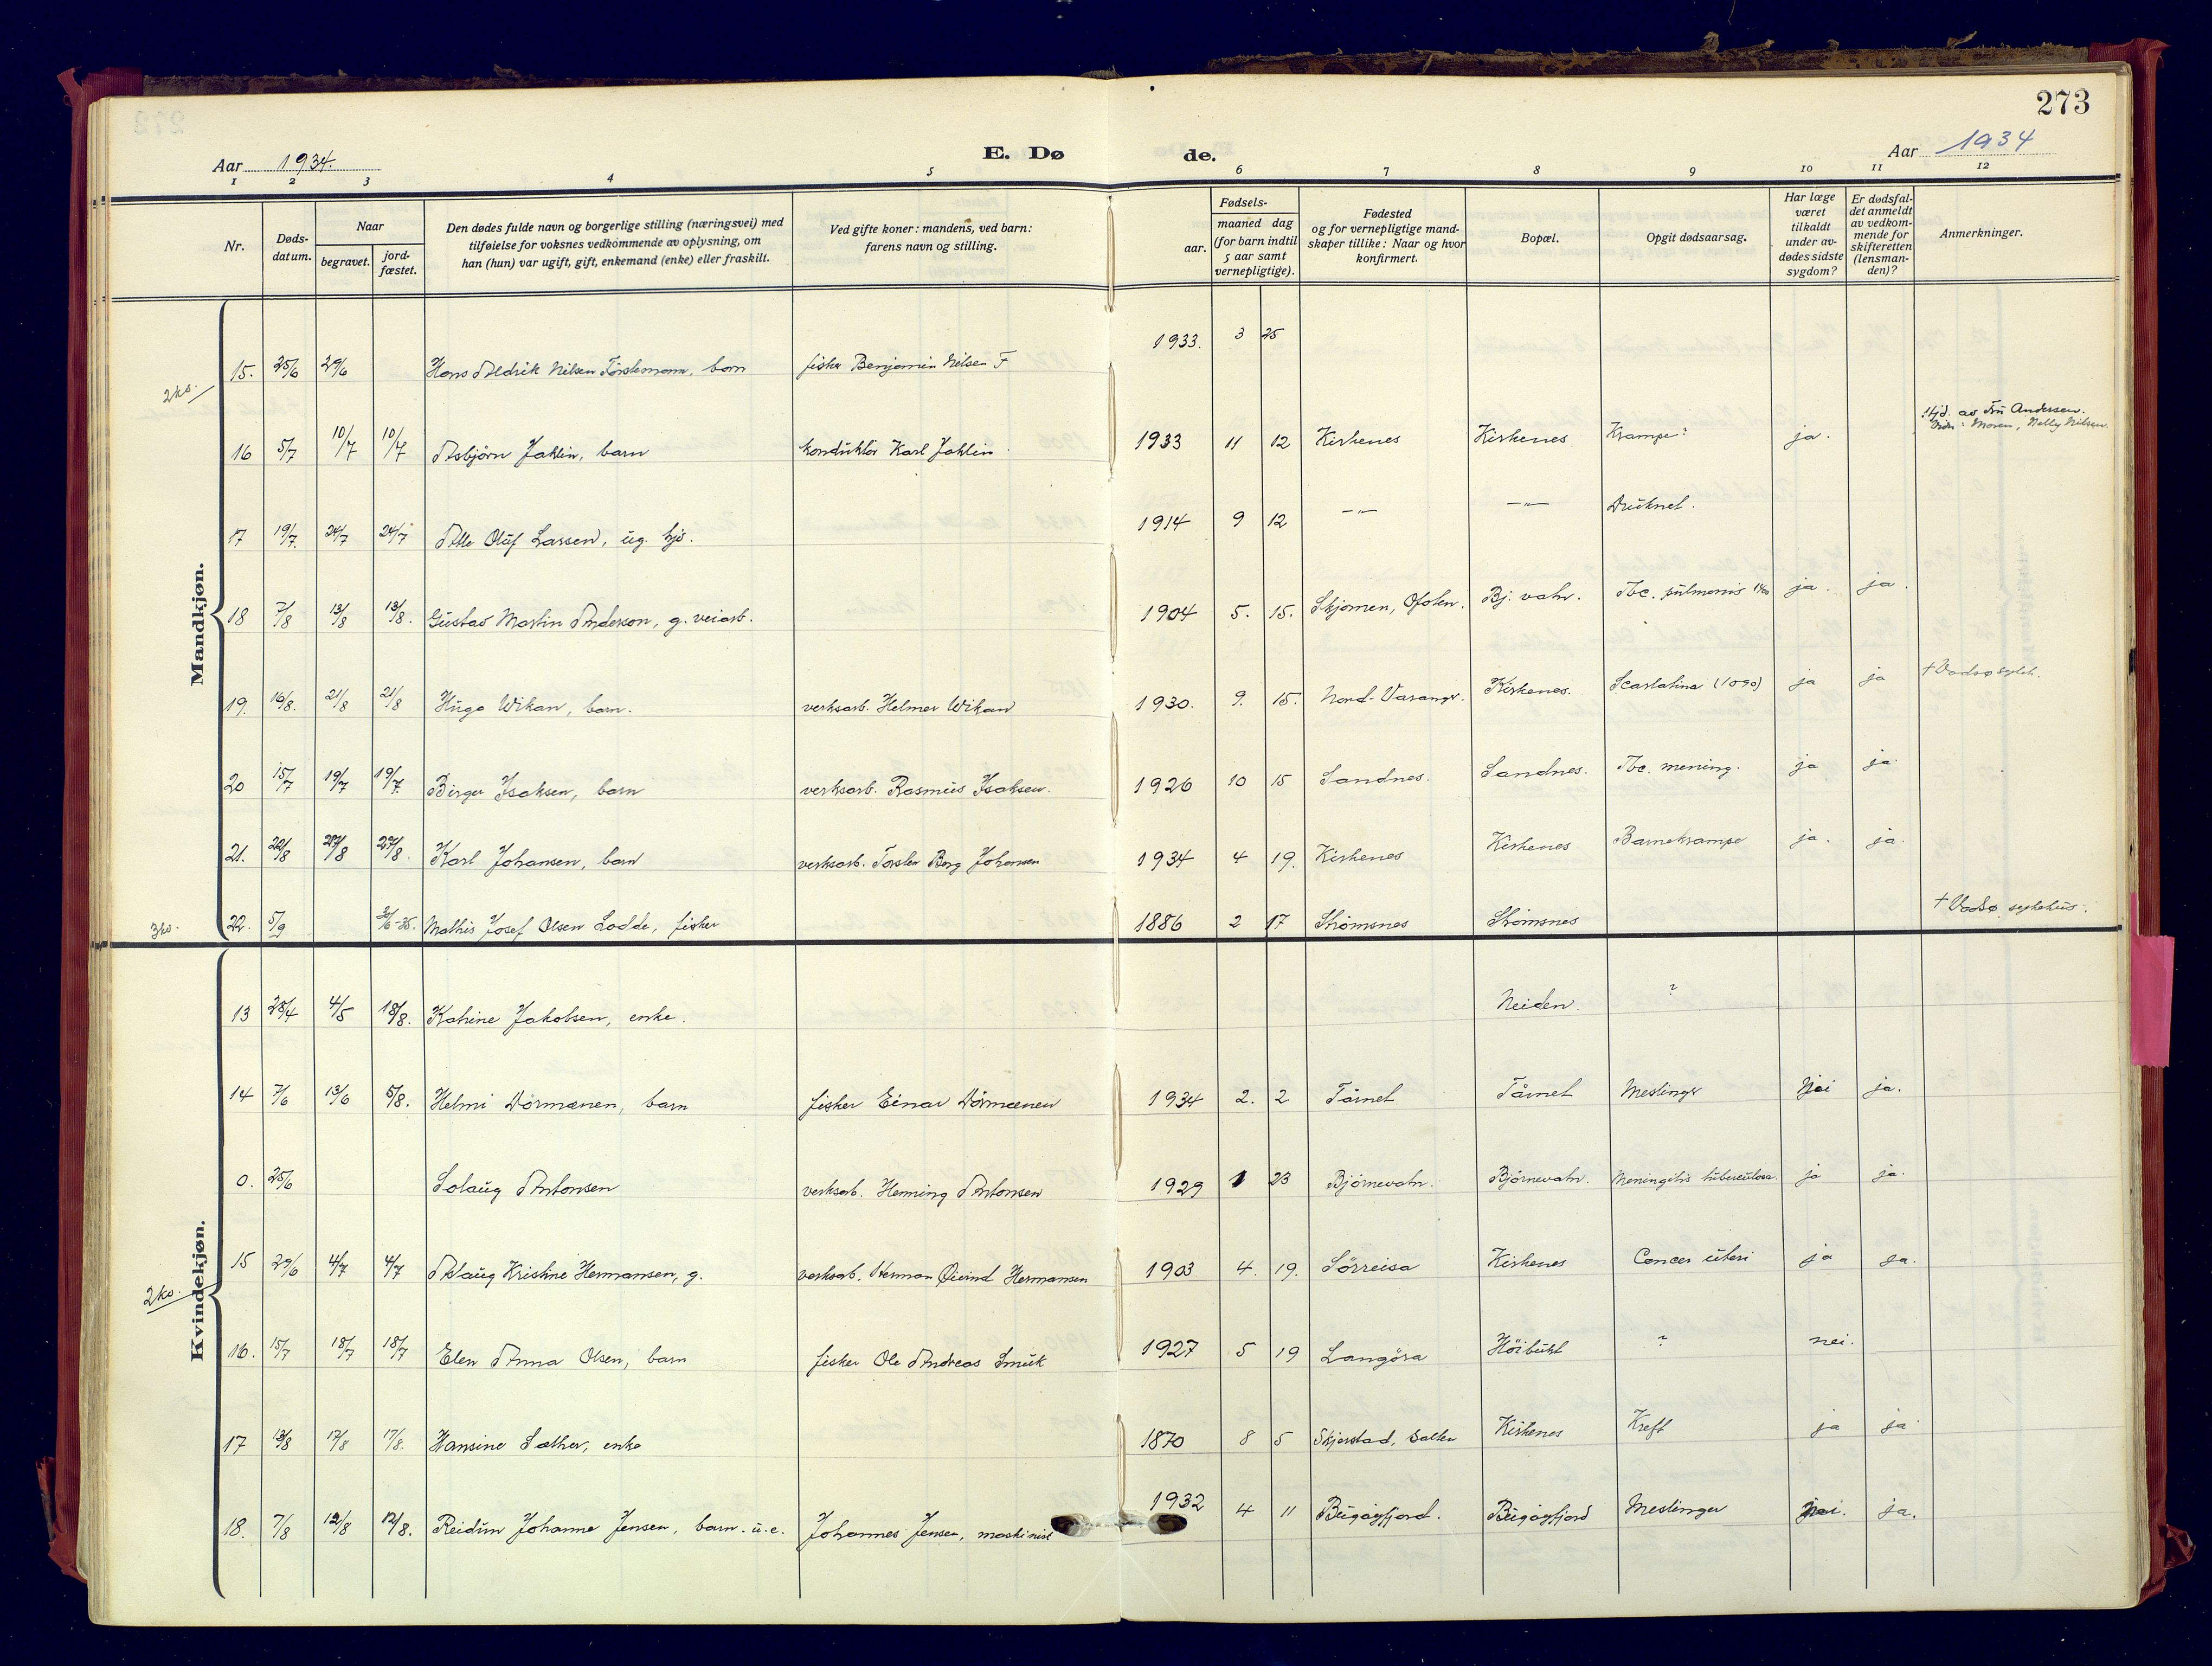 273
Aar 1934.
E. Dø
de.
Aar 1934
1 2 3 4 5 6 7 8 9 10 11 12
Nr.
Døds-
datum.
Naar
begravet.
jord-
fæstet.
Den dødes fulde navn og borgerlige stilling (næringsvei) med
tilføielse for voksnes vedkommende av oplysning, om
han (hun) var ugift, gift, enkemand (enke) eller fraskilt.
Ved gifte koner: mandens, ved barn:
farens navn og stilling.
Fødsels-
aar.
maaned dag
(for barn indtil
5 aar samt
vernepligtige).
Fødested
og for vernepligtige mand-
skaper tillike: Naar og hvor
konfirmert.
Bopæl.
Opgit dødsaarsag.
Har læge
været
tilkaldt
under av-
dødes sidste
sygdom?
Er dødsfal-
det anmeldt
av vedkom-
mende for
skifteretten
(lensman-
den)?
Anmerkninger.
Mandkjøn.
15. 25/6 29/6 Hans Aldrik Nilsen barn fisker Benjamin Nilsen F 1933. 3 25
2ks.
Hjd. av Fru Andersen.
Moren, Nelly Nilsen.
16 5/7 10/7 10/7 Asbjörn Jaklin, barn konduktör Karl Jaklin 1933 11 12 Kirkenes Kirkenes Krampe? ja.
17 19/7. 24/7 24/7 Atle Oluf Larsen, ug. hjs. 1914 9 12 —"— —"— Druknet.
18 7/8 13/8 13/8. Gustav Martin Anderson, g. veiarb. 1904 5. 15. Skjomen, Ofoten. Bj. vatn. Tbc. pulmonis ja. ja.
19. 16/8. 21/8 21/8 Hugo Wikan, barn. verksarb. Helmer Wikan 1930. 9. 15. Nord-Varanger. Kirkenes. Scarlatina (1090) ja ja † Vadsø sykeh.
20 15/7 19/7 19/7. Birger Isaksen, barn verksarb. Rasmus Isaksen. 1926 10 15 Sandnes. Sandnes. Tbc. mening. ja ja.
21. 22/8 27/8 27/8. Karl Johansen, barn verksarb. Torsten Borg Johansen 1934 4 19. Kirkenes Kirkenes Barnekrampe ja. ja.
3ks. 22. 5/9 Mathis Josef Olsen Lodde, fisker 1886 2 17 Strömsnes Strömsnes † Vadsø sykehus.
Kvindekjøn.
13 28/4 4/5 18/8. Katrine Jakobsen, enke. Neiden. ?
14 7/6 13/6 5/8. Helmi Dörmænen, barn fisker Einar Dörmænen 1934 2. 2 Tårnet Tårnet Meslinger Nei ja.
0. 25/6 Solaug Antonsen verksarb. Henning Antonsen 1929 1 23 Björnevatn. Björnevatn. Meningitis tuberculosa. ja ja.
15 29/6 4/7 4/7 Aslaug Kristine Hermansen, g. verksarb. Herman Øivind Hermansen 1903 4. 19. Sörreisa Kirkenes Cancer uteri ja ja.
2ks.
16. 15/7 18/7 18/7 Elen Anna Olsen, barn fisker Ole Andreas Smuk 1927 5 19 Langöra Höibukt ? nei.
17 13/8 17/8 17/8. Hansine Sæther, enke 1870 8 5 Skjerstad, Salten Kirkenes Kreft ja ja.
18. 7/8 12/8 12/8. Reidun Johanne Jensen, barn. u.e. Johannes Jensen, maskinist 1932 4 11 Bugöyfjord. Bugöyfjord Meslinger nei. ja.